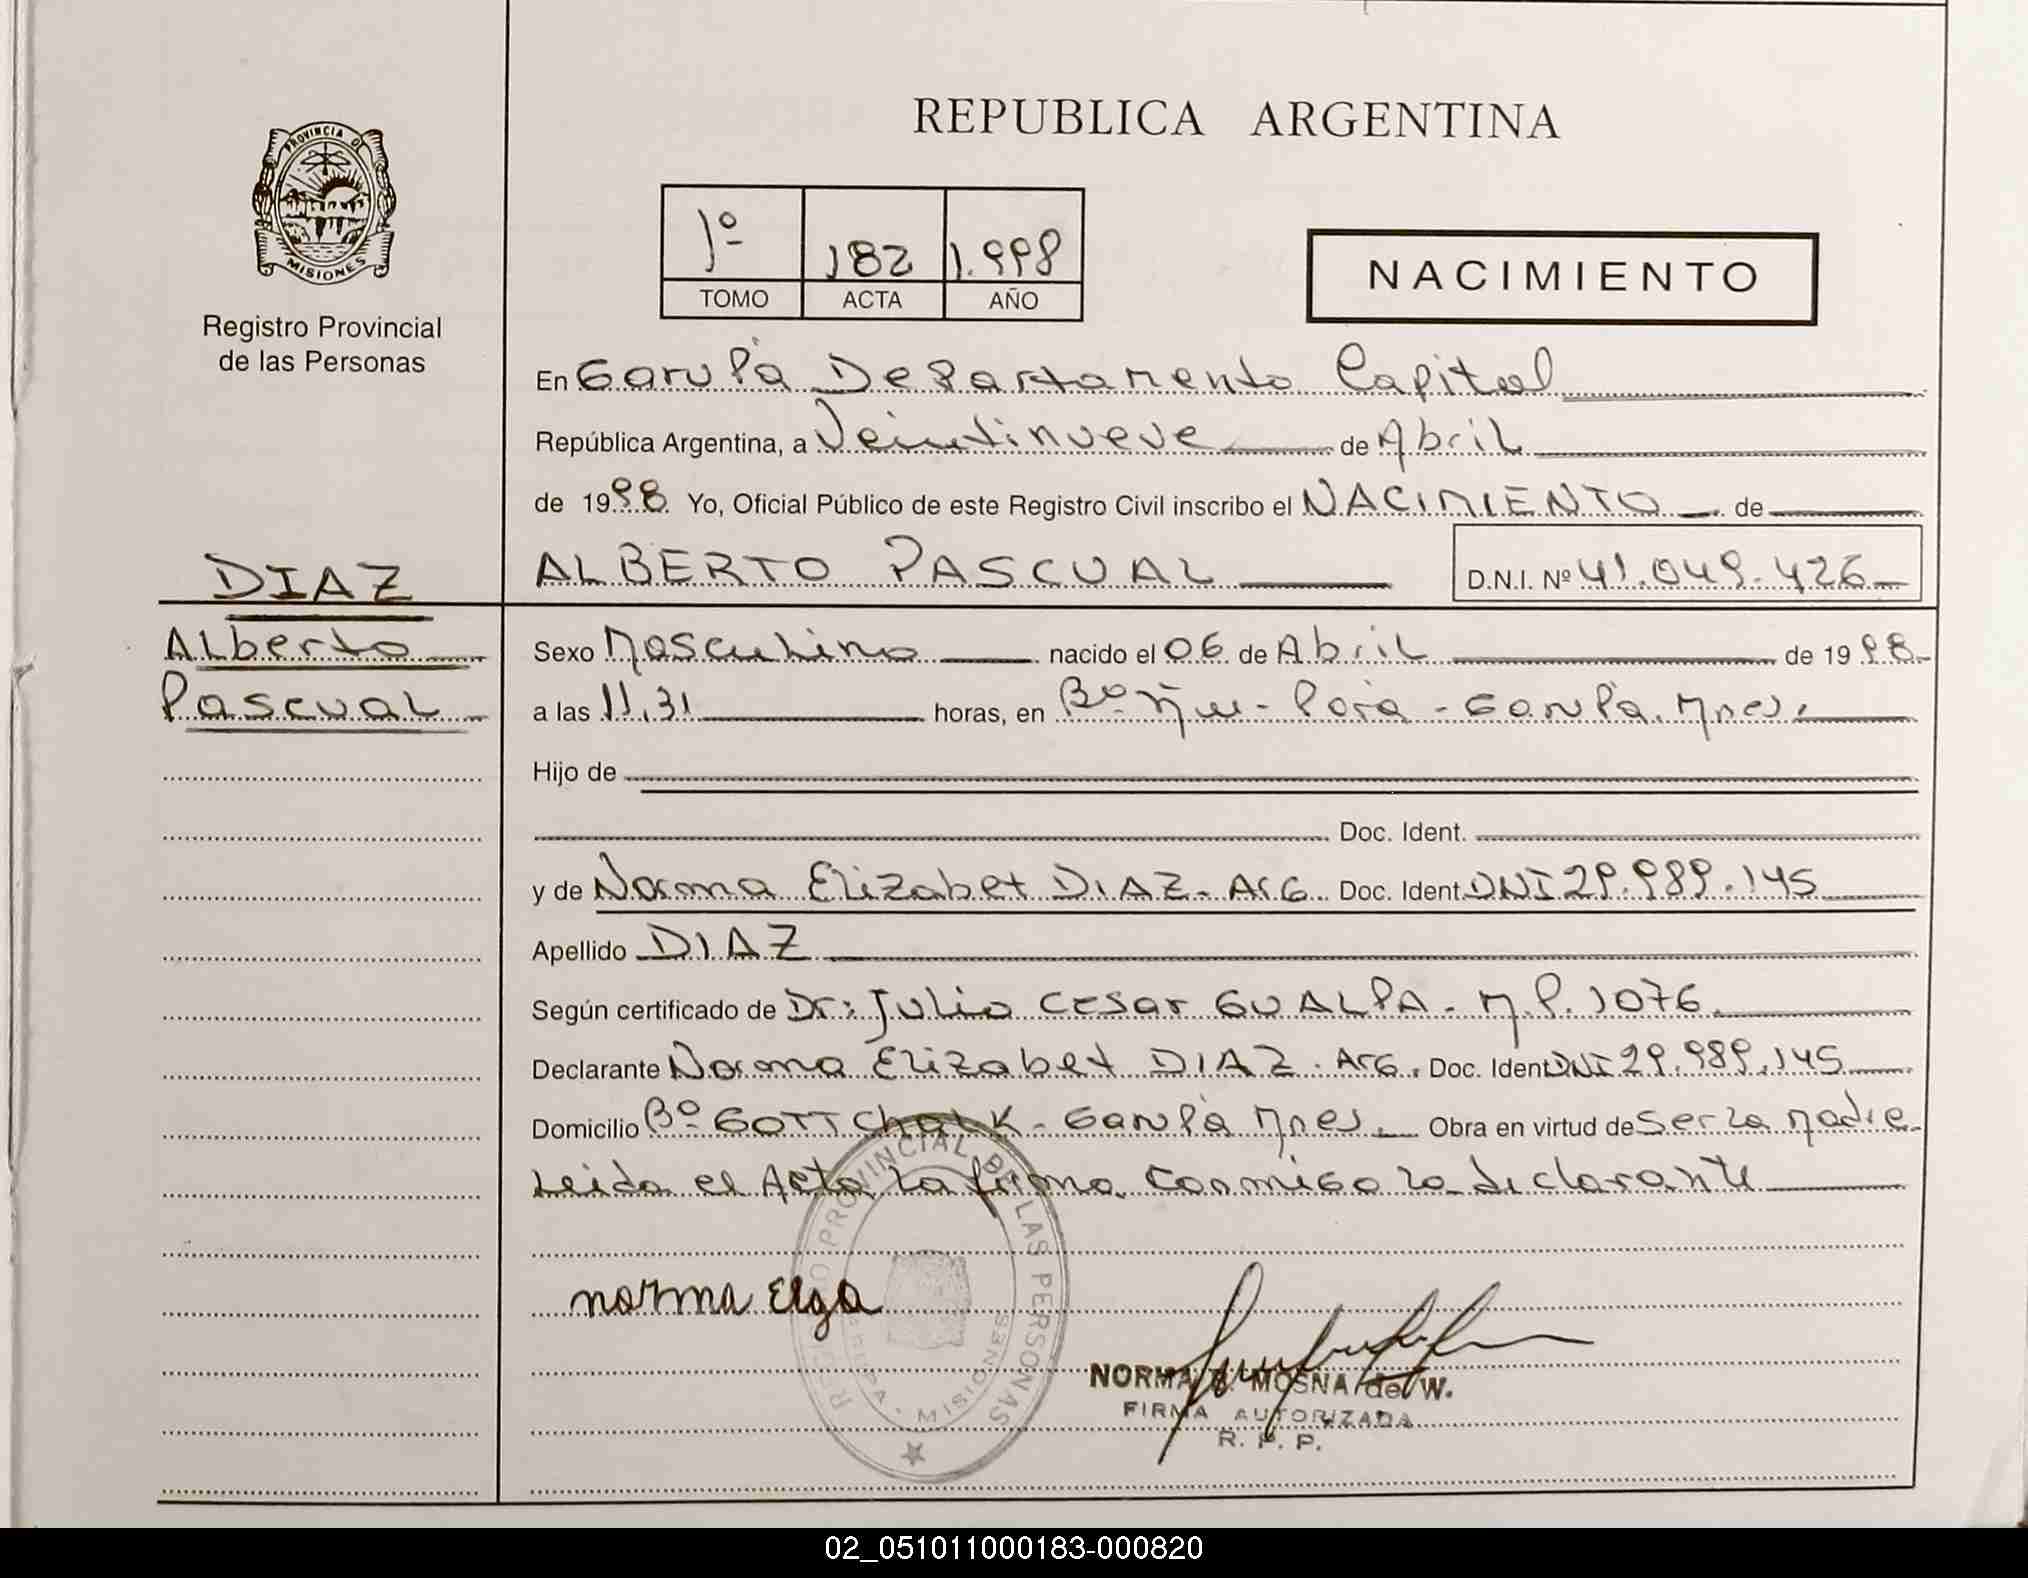 REPUBLICA ARGENTINA
PROVINCIA DE
MISIONES
Registro Provincial
de las Personas
1º 182 1.998
TOMO ACTA AÑO
NACIMIENTO
En Garupá Departamento Capital
República Argentina, a Veintinueve de Abril
de 1998 Yo, Oficial Público de este Registro Civil inscribo el NACIMIENTO de
ALBERTO PASCUAL D.N.I. Nº 41.049.426
DIAZ
Alberto
Pascual
Sexo Masculino nacido el 06 de Abril de 1998
a las 11,31 horas, en Bº Ñu-Porá-Garupá.Mnes.
Hijo de
Doc. Ident.
y de Norma Elizabet DIAZ-Arg. Doc. Ident. DNI 29.989.145
Apellido DIAZ
Según certificado de Dr: Julio Cesar GUALPA. M.P. 1076
Declarante Norma Elizabet DIAZ. Arg. Doc. Ident. DNI 29.989.145
Domicilio Bº GOTTChalK-Garupá Mnes. Obra en virtud de ser la Madre
Leida el Acta la firma conmigo la declarante
REGISTRO PROVINCIAL DE LAS PERSONAS
GARUPA - MISIONES
norma Elga
NORMA MOSNA de W.
FIRMA AUTORIZADA
R. P. P.
02_051011000183-000820